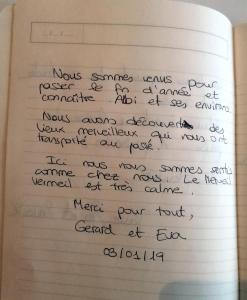 Nous sommes venus pour
passer le fin d'année et
connaître Albi et ses environs
Nous avons découvert des
lieux merveilleux qui nous ont
transporté au passé.
Ici nous nous sommes sentis
comme chez nous. Le
vermeil est très calme.
Merci pour tout,
Gerard et Eva
03/01/19